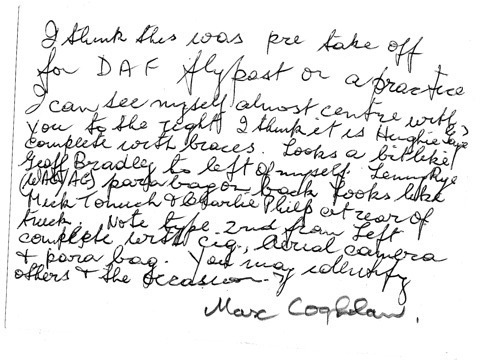 I think this was pre take off
for DAF flypast or a practice
I can see myself almost centre with
you to the right I think it is Hughie
complete with braces. Looks a bit like
Geoff Bradley to left of myself. Lenny Pye
(WAG/AG) para bag on back looks like
Mick Tomich & Charlie Philp at rear of
truck. Note type 2nd from left
complete with cig., aerial camera
& para bag. You may identify
others & the occasion
Max Coghlan.